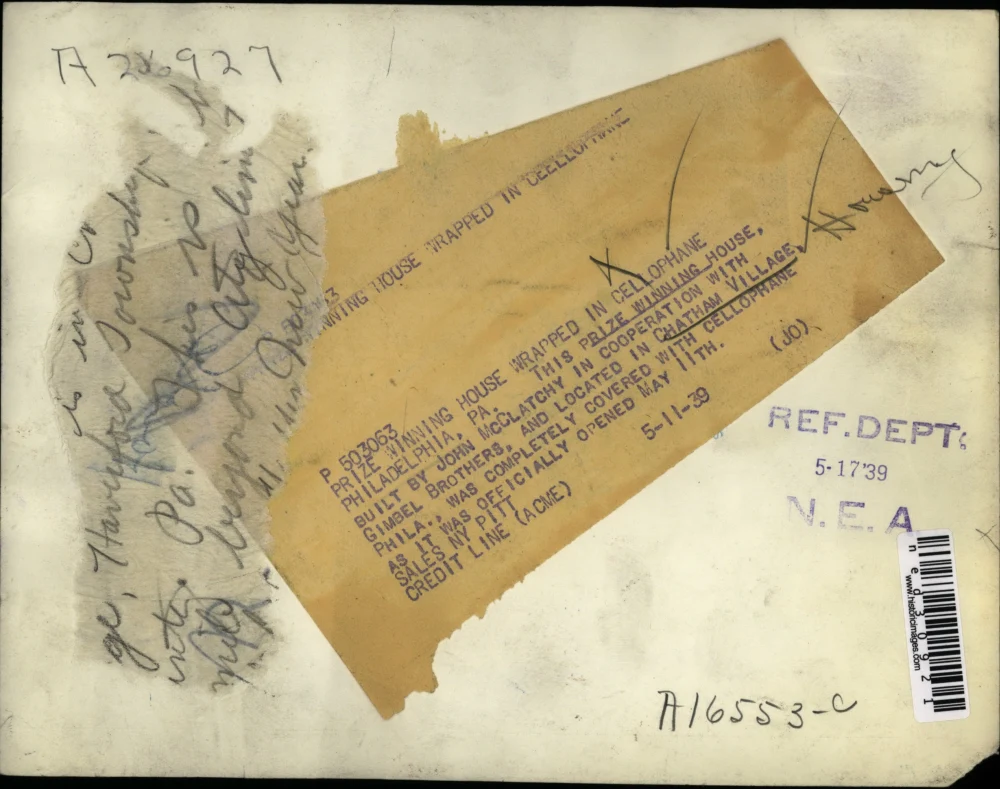 A 26927
NNING HOUSE WRAPPED IN CEELLOPHANE
P 503063
PRIZE WINNING HOUSE WRAPPED IN CELLOPHANE
PHILADELPHIA, PA. THIS PRIZE WINNING HOUSE,
BUILT BY JOHN MCCLATCHY IN COOPERATION WITH
GIMBEL BROTHERS, AND LOCATED IN CHATHAM VILLAGE,
PHILA., WAS COMPLETELY COVERED WITH CELLOPHANE
AS IT WAS OFFICIALLY OPENED MAY 11TH.
SALES NY PITT
CREDIT LINE (ACME) 5-11-39 (JO)
Housing
is in
ge, Haverford Township,
Pa. This is
beyond City line
in New York.
REF. DEPT.
5-17'39
N. E. A
A16553-C
ned30921
www.historicimages.com